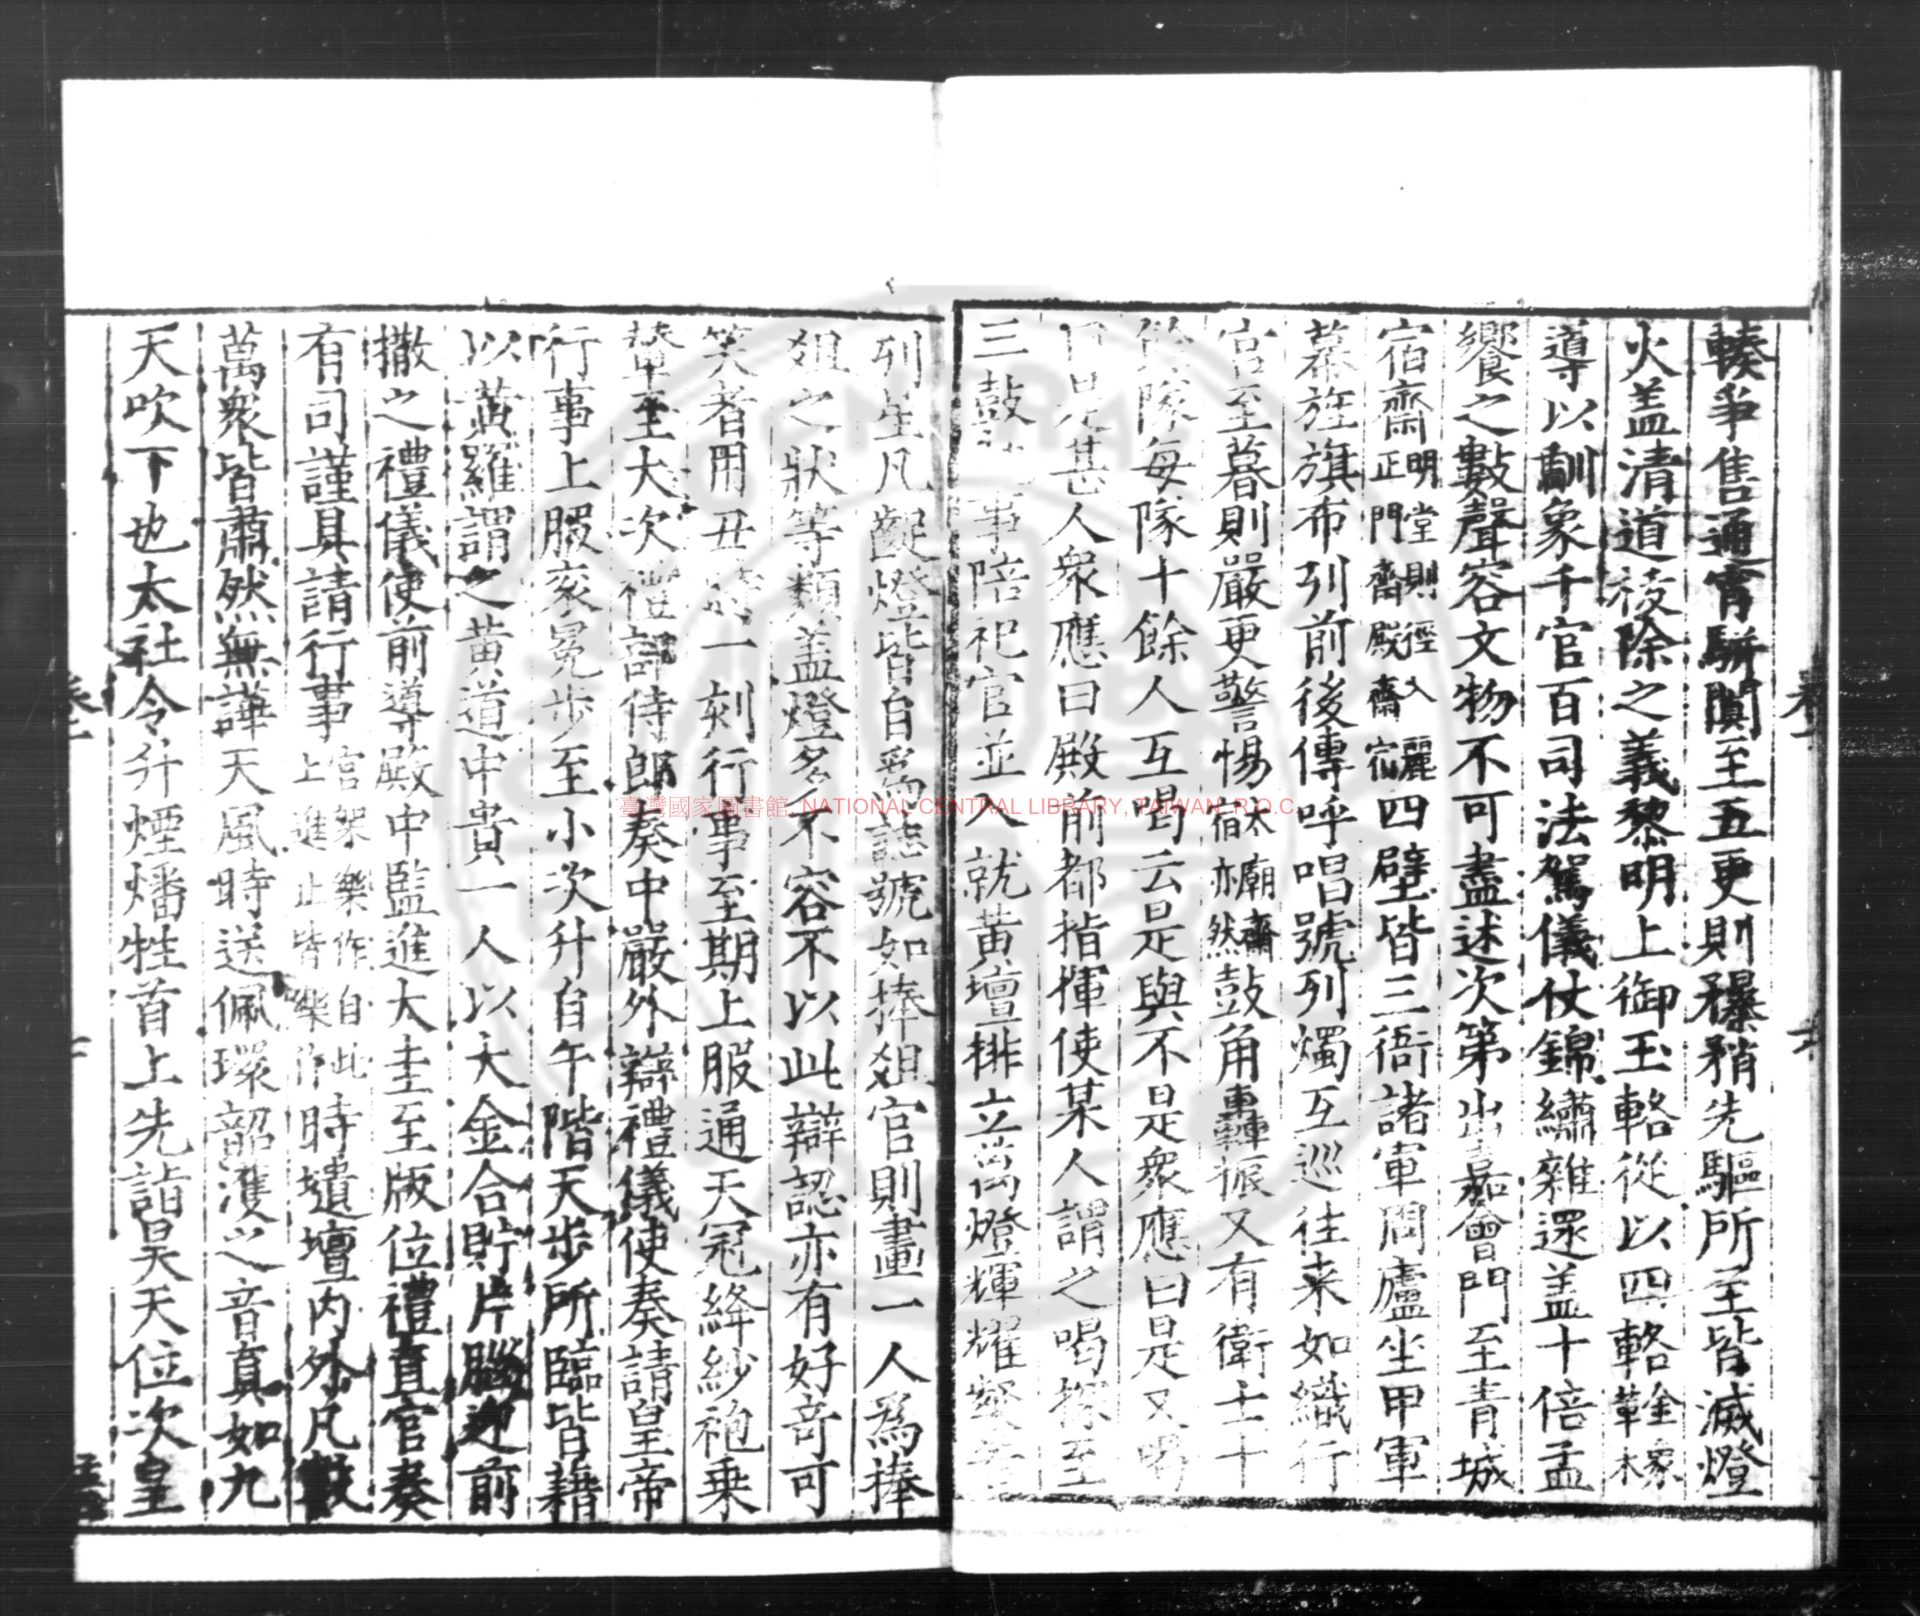 輳爭售通宵駢闐至五更則稞矟先驅所至皆滅燈
火盖清道祓除之義黎明上御玉輅從以四輅金象革木
導以馴象千官百司法駕儀仗錦繡雜遝盖十倍孟
饗之數聲容文物不可盡述次第出嘉會門至青城
宿齋明堂則徑入麗正門齋殿齋宿四壁皆三衙諸軍周廬坐甲軍
幕旌旗布列前後傳呼唱號列燭互巡往来如織行
宫至暮則嚴更警惕太廟齋宿亦然鼓角轟振又有衛士十
隊每隊十餘人互喝云是與不是衆應曰是又喝
是甚人衆應曰殿前都指揮使某人謂之喝探至
三鼓事陪祀官並入就黄壇排立萬燈輝耀
列星凡齪燈皆自爲誌號如捧俎官則畫一人爲捧
俎之狀等類盖燈多不容不以此辯認亦有好奇可
笑者用丑時一刻行事至期上服通天冠絳紗袍乗
輦至大次禮部侍郎奏中嚴外辦禮儀使奏請皇帝
行事上服衮冕步至小次升自午階天步所臨皆藉
以黄羅謂之黄道中貴一人以大金合貯片腦迎前
撒之禮儀使前導殿中監進大圭至版位禮直官奏
有司謹具請行事宫架樂作自此上進止皆樂作時壝壇内外凡數
萬衆皆肅然無譁天風時送佩環韶濩之音真如九
天吹下也太社令升煙燔牲首上先詣昊天位次皇